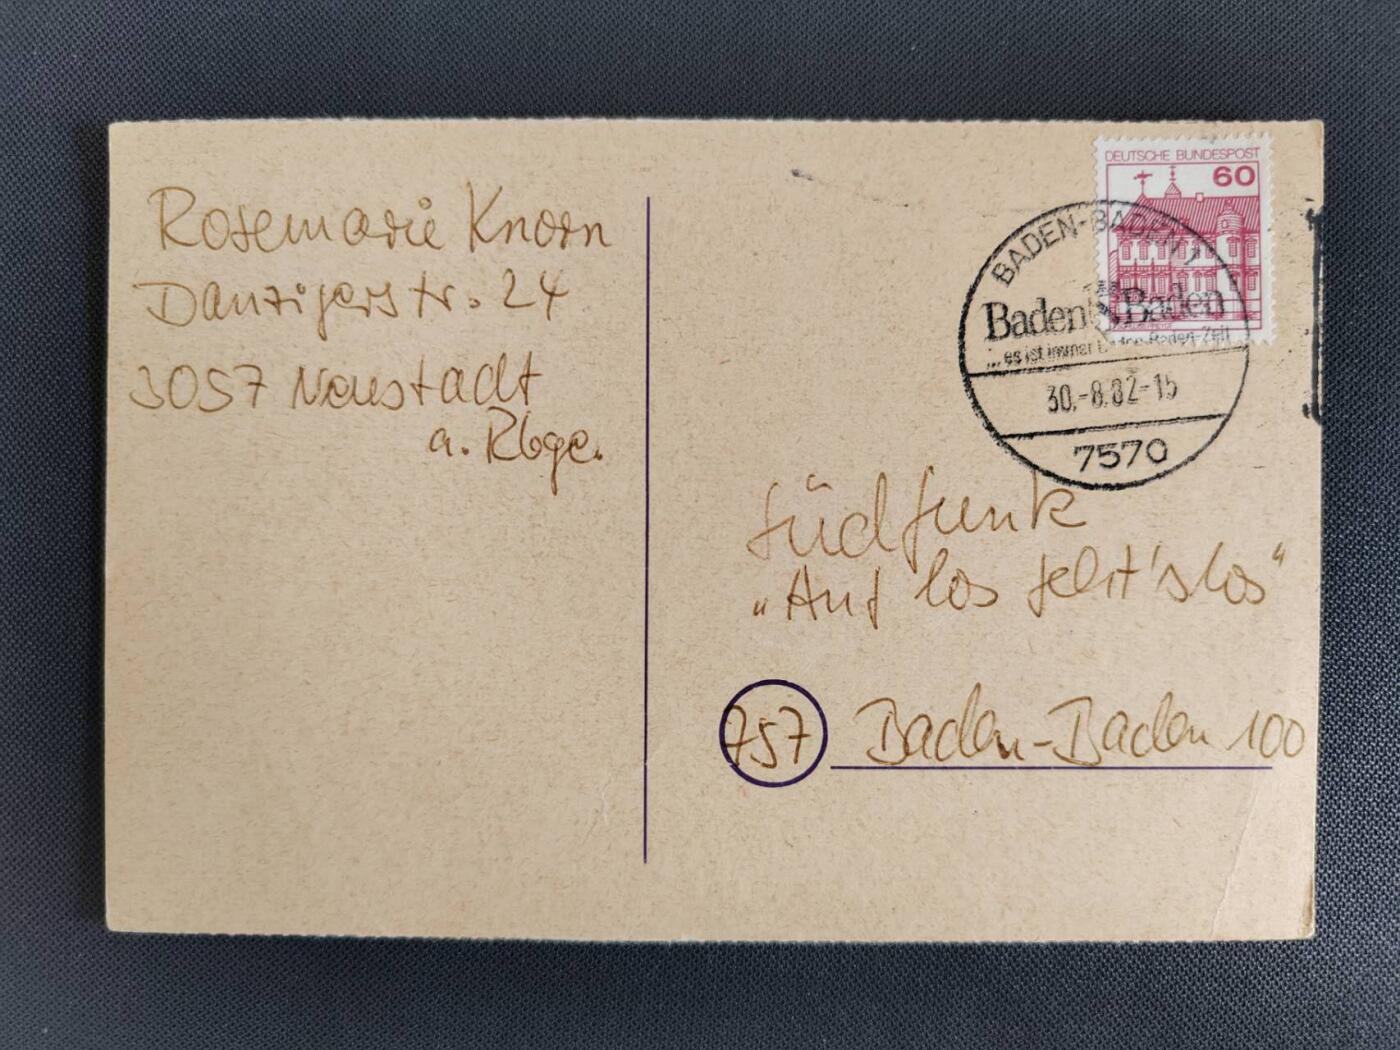 Rosemarie Knorn
Danzigerstr. 24
3057 Neustadt
a. Rbge.
DEUTSCHE BUNDESPOST
60
BADEN-BADEN 1
Baden Baden
...es ist immer Baden-Baden-Zeit
30.-8.82-15
7570
Südfunk
„Auf los geht's los“
757 Baden-Baden 100